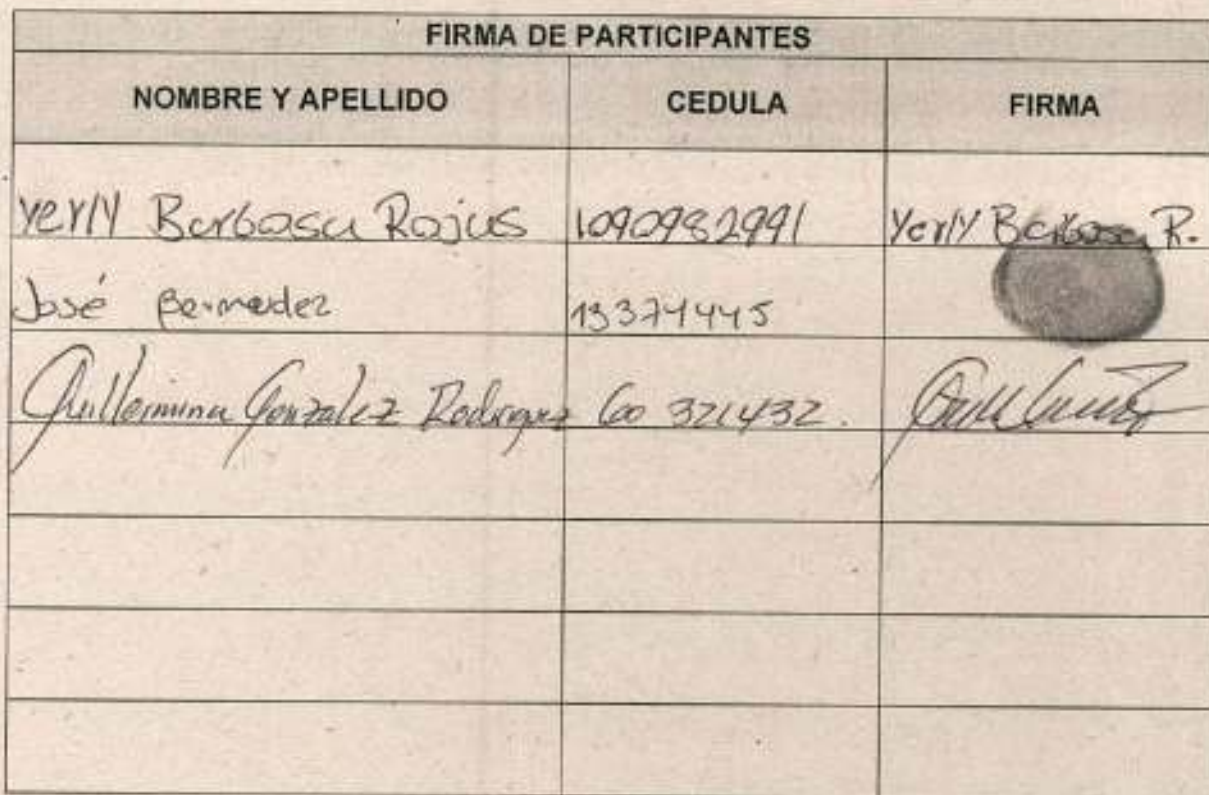 FIRMA DE PARTICIPANTES
NOMBRE Y APELLIDO CEDULA FIRMA
Yerly Barbosa Rojas 1090982991 Yerly Barbosa R.
José Bermudez 13374445
Guillermina Gonzalez Rodriguez 60 321432.